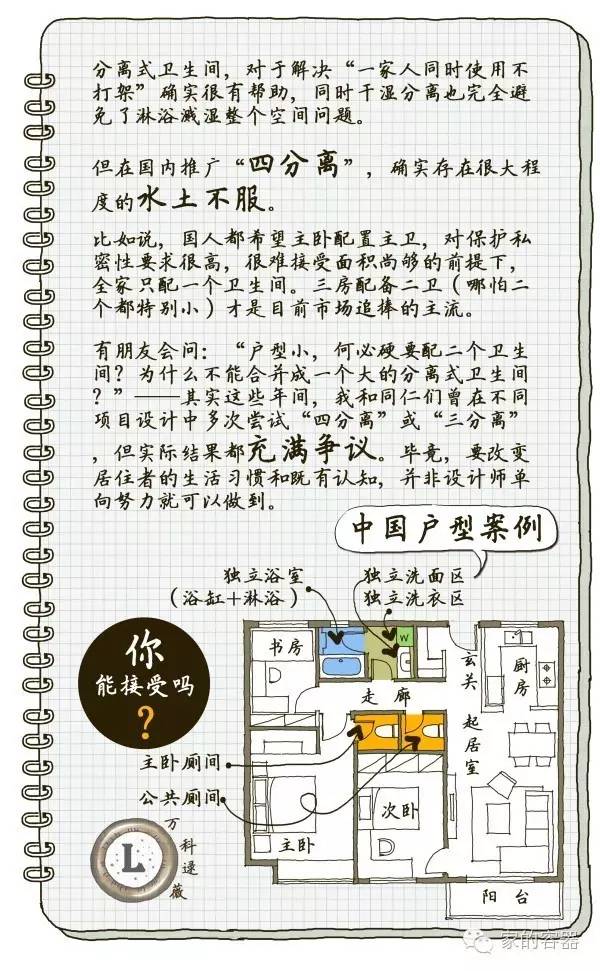 分离式卫生间，对于解决“一家人同时使用不
打架”确实很有帮助，同时干湿分离也完全避
免了淋浴溅湿整个空间问题。
但在国内推广“四分离”，确实存在很大程
度的水土不服。
比如说，国人都希望主卧配置主卫，对保护私
密性要求很高，很难接受面积尚够的前提下，
全家只配一个卫生间。三房配备二卫（哪怕二
个都特别小）才是目前市场追捧的主流。
有朋友会问：“户型小，何必硬要配二个卫生
间？为什么不能合并成一个大的分离式卫生间
？”——其实这些年间，我和同仁们曾在不同
项目设计中多次尝试“四分离”或“三分离”
，但实际结果都充满争议。毕竟，要改变
居住者的生活习惯和既有认知，并非设计师单
向努力就可以做到。
中国户型案例
独立浴室
（浴缸＋淋浴）
独立洗面区
独立洗衣区
你
能接受吗
？
书房
W
玄关
厨房
走廊
起居室
主卧厕间
公共厕间
主卧
次卧
阳台
L
万科逯薇
家的容器